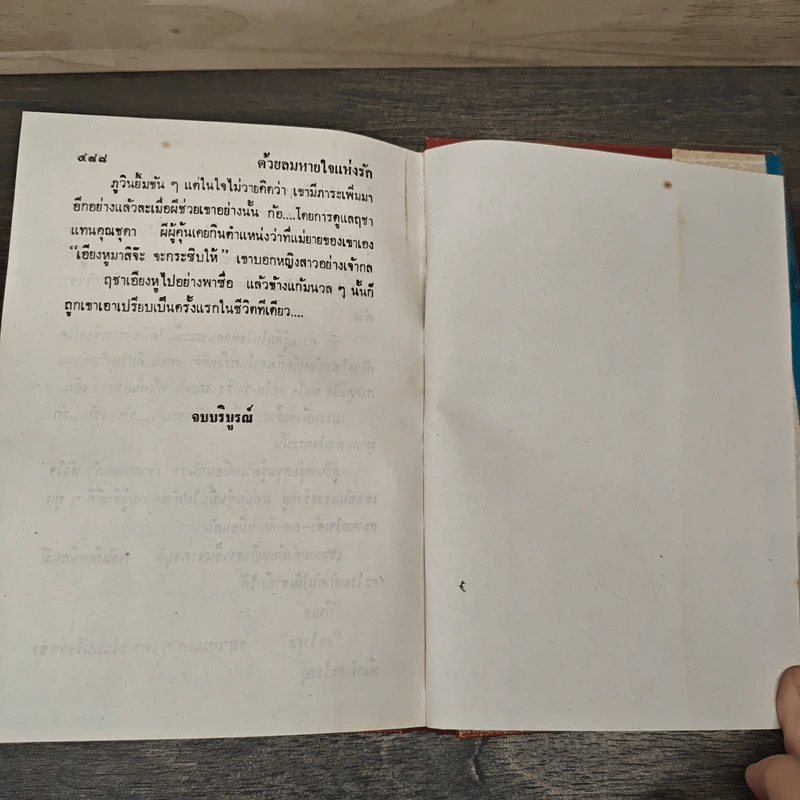 ๔๙๘ ด้วยลมหายใจแห่งรัก
ภูวินยิ้มขัน ๆ แต่ในใจไม่วายคิดว่า เขามีภาระเพิ่มมา
อีกอย่างแล้วละเมื่อผีช่วยเขาอย่างนั้น ก้อ....โดยการดูแลฤชา
แทนคุณชุดา ผีผู้คุ้นเคยกินตำแหน่งว่าที่แม่ยายของเขาเอง
“เอียงหูมาสิจ๊ะ จะกระซิบให้” เขาบอกหญิงสาวอย่างเจ้ากล
ฤชาเอียงหูไปอย่างพาซื่อ แล้วข้างแก้มนวล ๆ นั้นก็
ถูกเขาเอาเปรียบเป็นครั้งแรกในชีวิตทีเดียว....
จบบริบูรณ์